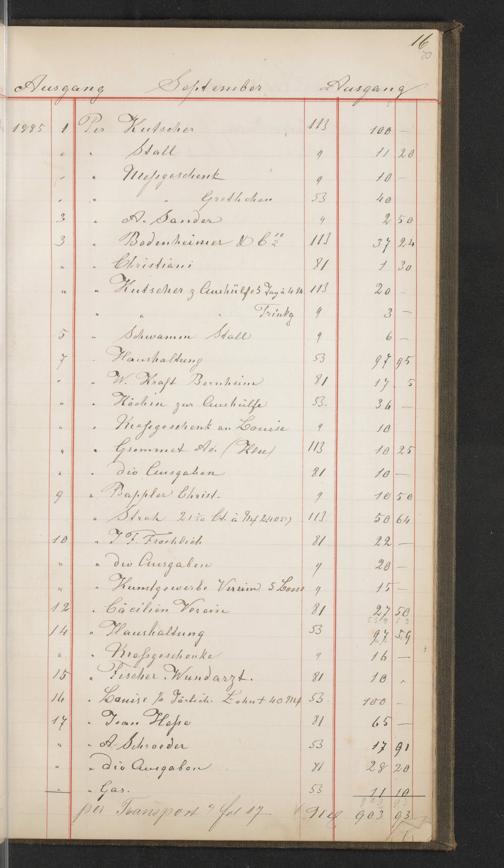 16
20
Ausgang September Ausgang
1895 1 Per Kutscher 113 100 —
" " Stall 9 11 20
" " Meßgeschenk 9 10 —
" " " Grethchen 53 40
3 " A. Sander 9 2 50
3 " Bodenheimer & C 113 37 24
" " Christiani 81 1 30
" " Kutscher z Aushülfe 5 Tag à 4 M 113 20 —
" " " Trinkg 9 3 —
5 " Schwamm Stall 9 6 —
7 " Haushaltung 53 97 95
" " W. Kraft Bernheim 81 17 5
" " Köchin zur Aushülfe 53 36 —
" " Meßgeschenk an Louise 9 10
" " Grommet Ad. (Heu) 113 10 25
" " div Ausgaben 81 10 —
9 " Pappler Christ. 9 10 50
" Stroh 113 50 64
10 " J. F. Froehlich 81 22 —
" " div Ausgaben 9 20 —
" " Kunstgewerbe Verein 9 15 —
12 " Cäcilien Verein 81 27 50
14 " Haushaltung 53 97 59
" " Meßgeschenke 9 16 —
15 " Fischer Wundarzt. 81 10 "
16 " Louise Lohn + 40 M 53 100 —
17 " Jean Hesse 81 65 —
" " A Schroeder 53 17 91
" " div Ausgaben 81 28 20
" " Gas. 53 11 10
per Transport fol 17 903 93